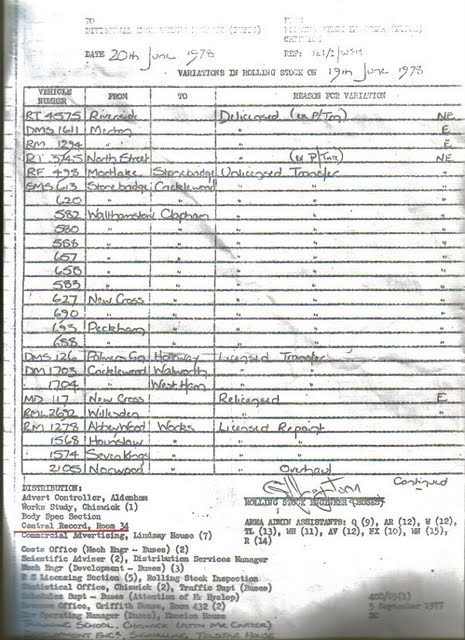 TO
DATE 20th June 1978 REF:
VARIATIONS IN ROLLING STOCK ON 19th June 1978
VEHICLE NUMBER FROM TO REASON FOR VARIATION
RT 4575 Riverside Delicensed (ex P/Tng) NE
DMS 1611 Merton " E
RM 1294 " " E
RT 3745 North Street " (ex P/Tng) NE
RF 498 Mortlake Stonebridge Unlicensed Transfer "
SMS 613 Stonebridge Cricklewood " "
620 " " " "
582 Walthamstow Clapham " "
580 " " " "
568 " " " "
657 " " " "
658 " " " "
583 " " " "
627 New Cross " " "
690 " " " "
693 Peckham " " "
688 " " " "
DMS 126 Palmers Gn Holloway Licensed Transfer
DM 1703 Cricklewood Walworth "
1704 " West Ham "
MD 117 New Cross Relicensed E
RML 2692 Willesden " "
RM 1278 Abbey Wood Works Licensed Repaint
1568 Hounslow " "
1574 Seven Kings " "
2105 Norwood " Overhaul
Continued
DISTRIBUTION:
Advert Controller, Aldenham
Works Study, Chiswick (1)
Body Spec Section
Central Record, Room 34
Commercial Advertising, Lindsay House (7)
Costs Office (Mech Engr - Buses) (2)
Scientific Adviser (2), Distribution Services Manager
Mech Engr (Development - Buses) (3)
R S Licensing Section (5), Rolling Stock Inspection
Statistical Office, Chiswick (2), Traffic Supt (Buses)
Schedules Supt - Buses (Attention of Mr Hyslop)
Revenue Office, Griffith House, Room 432 (2)
Operating Manager (Buses), Mansion House
TRAINING SCHOOL, CHISWICK (ATTN MR CARTER)
ROLLING STOCK ENGINEER (BUSES)
AREA ADMIN ASSISTANTS: Q (9), AR (12), W (12),
TL (13), WH (11), AV (12), HX (10), WN (15),
R (14)
5 September 1977